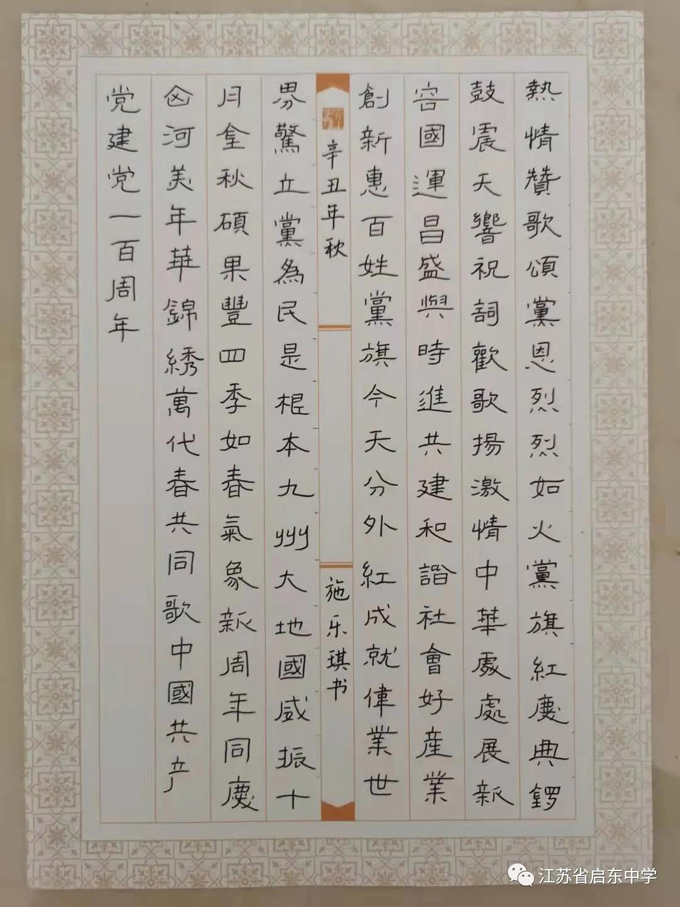 熱情贊歌頌黨恩烈烈如火黨旗紅慶典鑼
鼓震天響祝詞歡歌揚激情中華處處展新
容國運昌盛與時進共建和諧社會好產業
創新惠百姓黨旗今天分外紅成就偉業世
辛丑年秋
施乐琪书
界驚立黨為民是根本九州大地國威振十
月金秋碩果豐四季如春氣象新周年同慶
山河美年華錦綉萬代春共同歌中國共产
党建党一百周年
江苏省启东中学